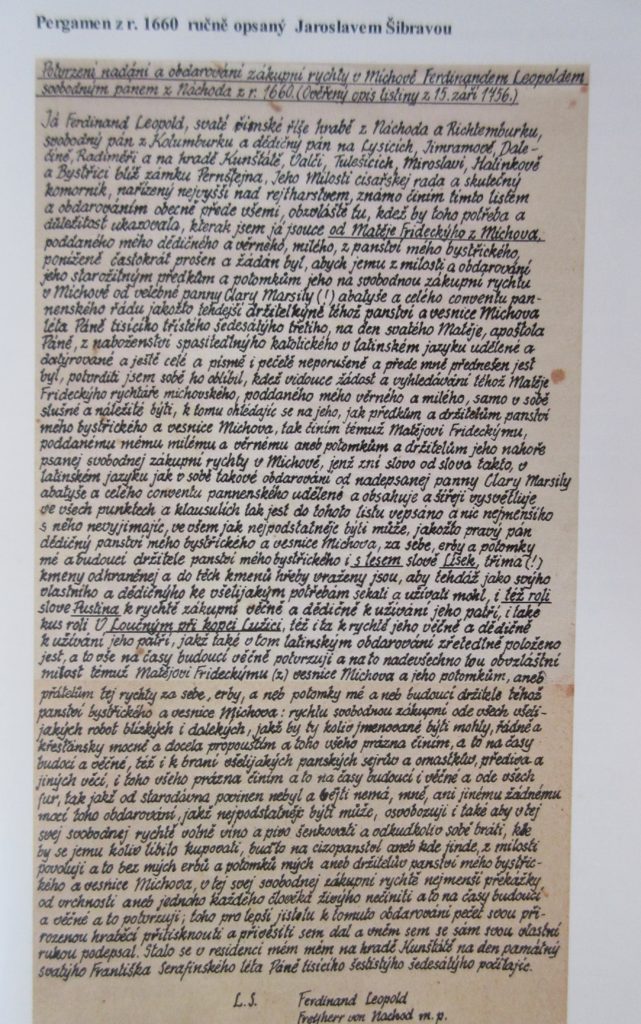 Pergamen z r. 1660 ručně opsaný Jaroslavem Šibravou
Potvrzení nadání a obdarování zákupní rychty v Míchově Ferdinandem Leopoldem
svobodným pánem z Náchoda z r. 1660. (Ověřený opis listiny z 15. září 1756.)
Já Ferdinand Leopold, svaté římské říše hrabě z Náchoda a Richtemburku,
svobodný pán z Kolumburku a dědičný pán na Lysicích, Jimramově, Dale-
číně, Radiměři a na hradě Kunštátě, Valči, Tulešicích, Miroslavi, Halinkově
a Bystřici blíž zámku Pernštejna, Jeho Milosti císařskej rada a skutečný
komorník, nařízený nejvyšší nad rejtharstvem, známo činím tímto listem
a obdarováním obecně přede všemi, obzvláště tu, kdež by toho potřeba a
důležitost ukazovala, kterak jsem já jsouce od Matěje Frideckýho z Míchova,
poddaného mého dědičného a věrného, milého, z panství mého bystřického,
poníženě častokrát prošen a žádán byl, abych jemu z milosti a obdarování
jeho starožitným předkům a potomkům jeho na svobodnou zákupní rychtu
v Míchově od velebné panny Clary Marsily (!) abatyše a celého conventu pan-
nenského řádu jakožto tehdejší držitelkyně téhož panství a vesnice Míchova
léta Páně tisícího třístého šedesátýho třetího, na den svatého Matěje, apoštola
Páně, z náboženství spasitedlnýho katolického v latinském jazyku udělené a
datýrované a ještě celé a písmě i pečetě neporušené a přede mně přednešen jest
byl, potvrditi jsem sobě ho oblíbil, kdež vidouce žádost a vyhledávání téhož Matěje
Frideckýho rychtáře míchovského, poddaného mého věrného a milého, samo v sobě
slušné a náležité býti, k tomu ohlédajíc se na jeho, jak předkům a držitelům panství
mého bystřického a vesnice Míchova, tak činím témuž Matějovi Frideckýmu,
poddanému mému milému a věrnému aneb potomkům a držitelům jeho nahoře
psanej svobodnej zákupní rychty v Míchově, jenž zní slovo od slova takto, v
latinském jazyku jak v sobě takové obdarování od nadepsanej panny Clary Marsily
abatyše a celého conventu pannenského udělené a obsahuje a šířeji vysvětluje
ve všech punktech a klausulích tak jest do tohoto listu vepsáno a nic nejmenšího
s něho nevyjímajíc, ve všem jak nejpodstatněje býti může, jakožto pravý pán
dědičný panství mého bystřického a vesnice Míchova, za sebe, erby a potomky
mé a budoucí držitele panství mého bystřického i s lesem slově Lísek, tříma (!)
kmeny odhraněnej a do těch kmenů hřeby vraženy jsou, aby tehdáž jako svýho
vlastního a dědičnýho ke všelijakým potřebám sekati a užívati mohl, i též roli
slove Pustina k rychtě zákupní věčně a dědičně k užívání jeho patří, i také
kus roli U Loučným při kopci Lužici, též i ta k rychtě jeho věčně a dědičně
k užívání jeho patří, jakž také v tom latinským obdarování zřetedlně položeno
jest, a to vše na časy budoucí věčně potvrzuji a na to nadevšechno tou obvzláštní
milost témuž Matějovi Frideckýmu (z) vesnice Míchova a jeho potomkům, aneb
přátelům tej rychty za sebe, erby, a neb potomky mé a neb budoucí držitele téhož
panství bystřického a vesnice Míchova: rychtu svobodnou zákupní ode všech všeli-
jakých robot blízkých i dolekých, jakž by ty koliv jmenované býti mohly, řádně a
křesťánsky mocně a docela propouštím a toho všeho prázna činím, a to na časy
budocí a věčně, též i k braní všelijakých panských sejrův a omastkův, přediva a
jiných věcí, i toho všeho prázna činím a to na časy budoucí i věčně a ode všech
fur, tak jakž od starodávna povinen nebyl a bejti nemá, mně, ani jinému žádnému
mocí toho obdarování, jakž nejpodstatněje býti může, osvobozuji i také aby v tej
svej svobodnej rychtě volně víno a pivo šenkovati a odkudkoliv sobě bráti, kde
by se jemu koliv líbilo kupovati, buďto na cizopanství aneb kde jinde, z milosti
povoluji a to bez mých erbů a potomků mých aneb držitelův panství mého bystřic-
kého a vesnice Míchova, v tej svej svobodnej zákupní rychtě nejmenší překážky
od vrchnosti aneb jednoho každého člověka živýho nečiniti a to na časy budoucí
a věčně a to potvrzuji; toho pro lepší jistotu k tomuto obdarování pečeť svou při-
rozenou hraběcí přitisknouti a přivěsiti sem dal a v něm sem se sám svou vlastní
rukou podepsal. Stalo se v residenci mém mém na hradě Kunštátě na den památný
svatýho Františka Serafinského léta Páně tisícího šestistýho šedesátýho počítajíc.
L.S. Ferdinand Leopold
Freyherr von Nachod m. p.